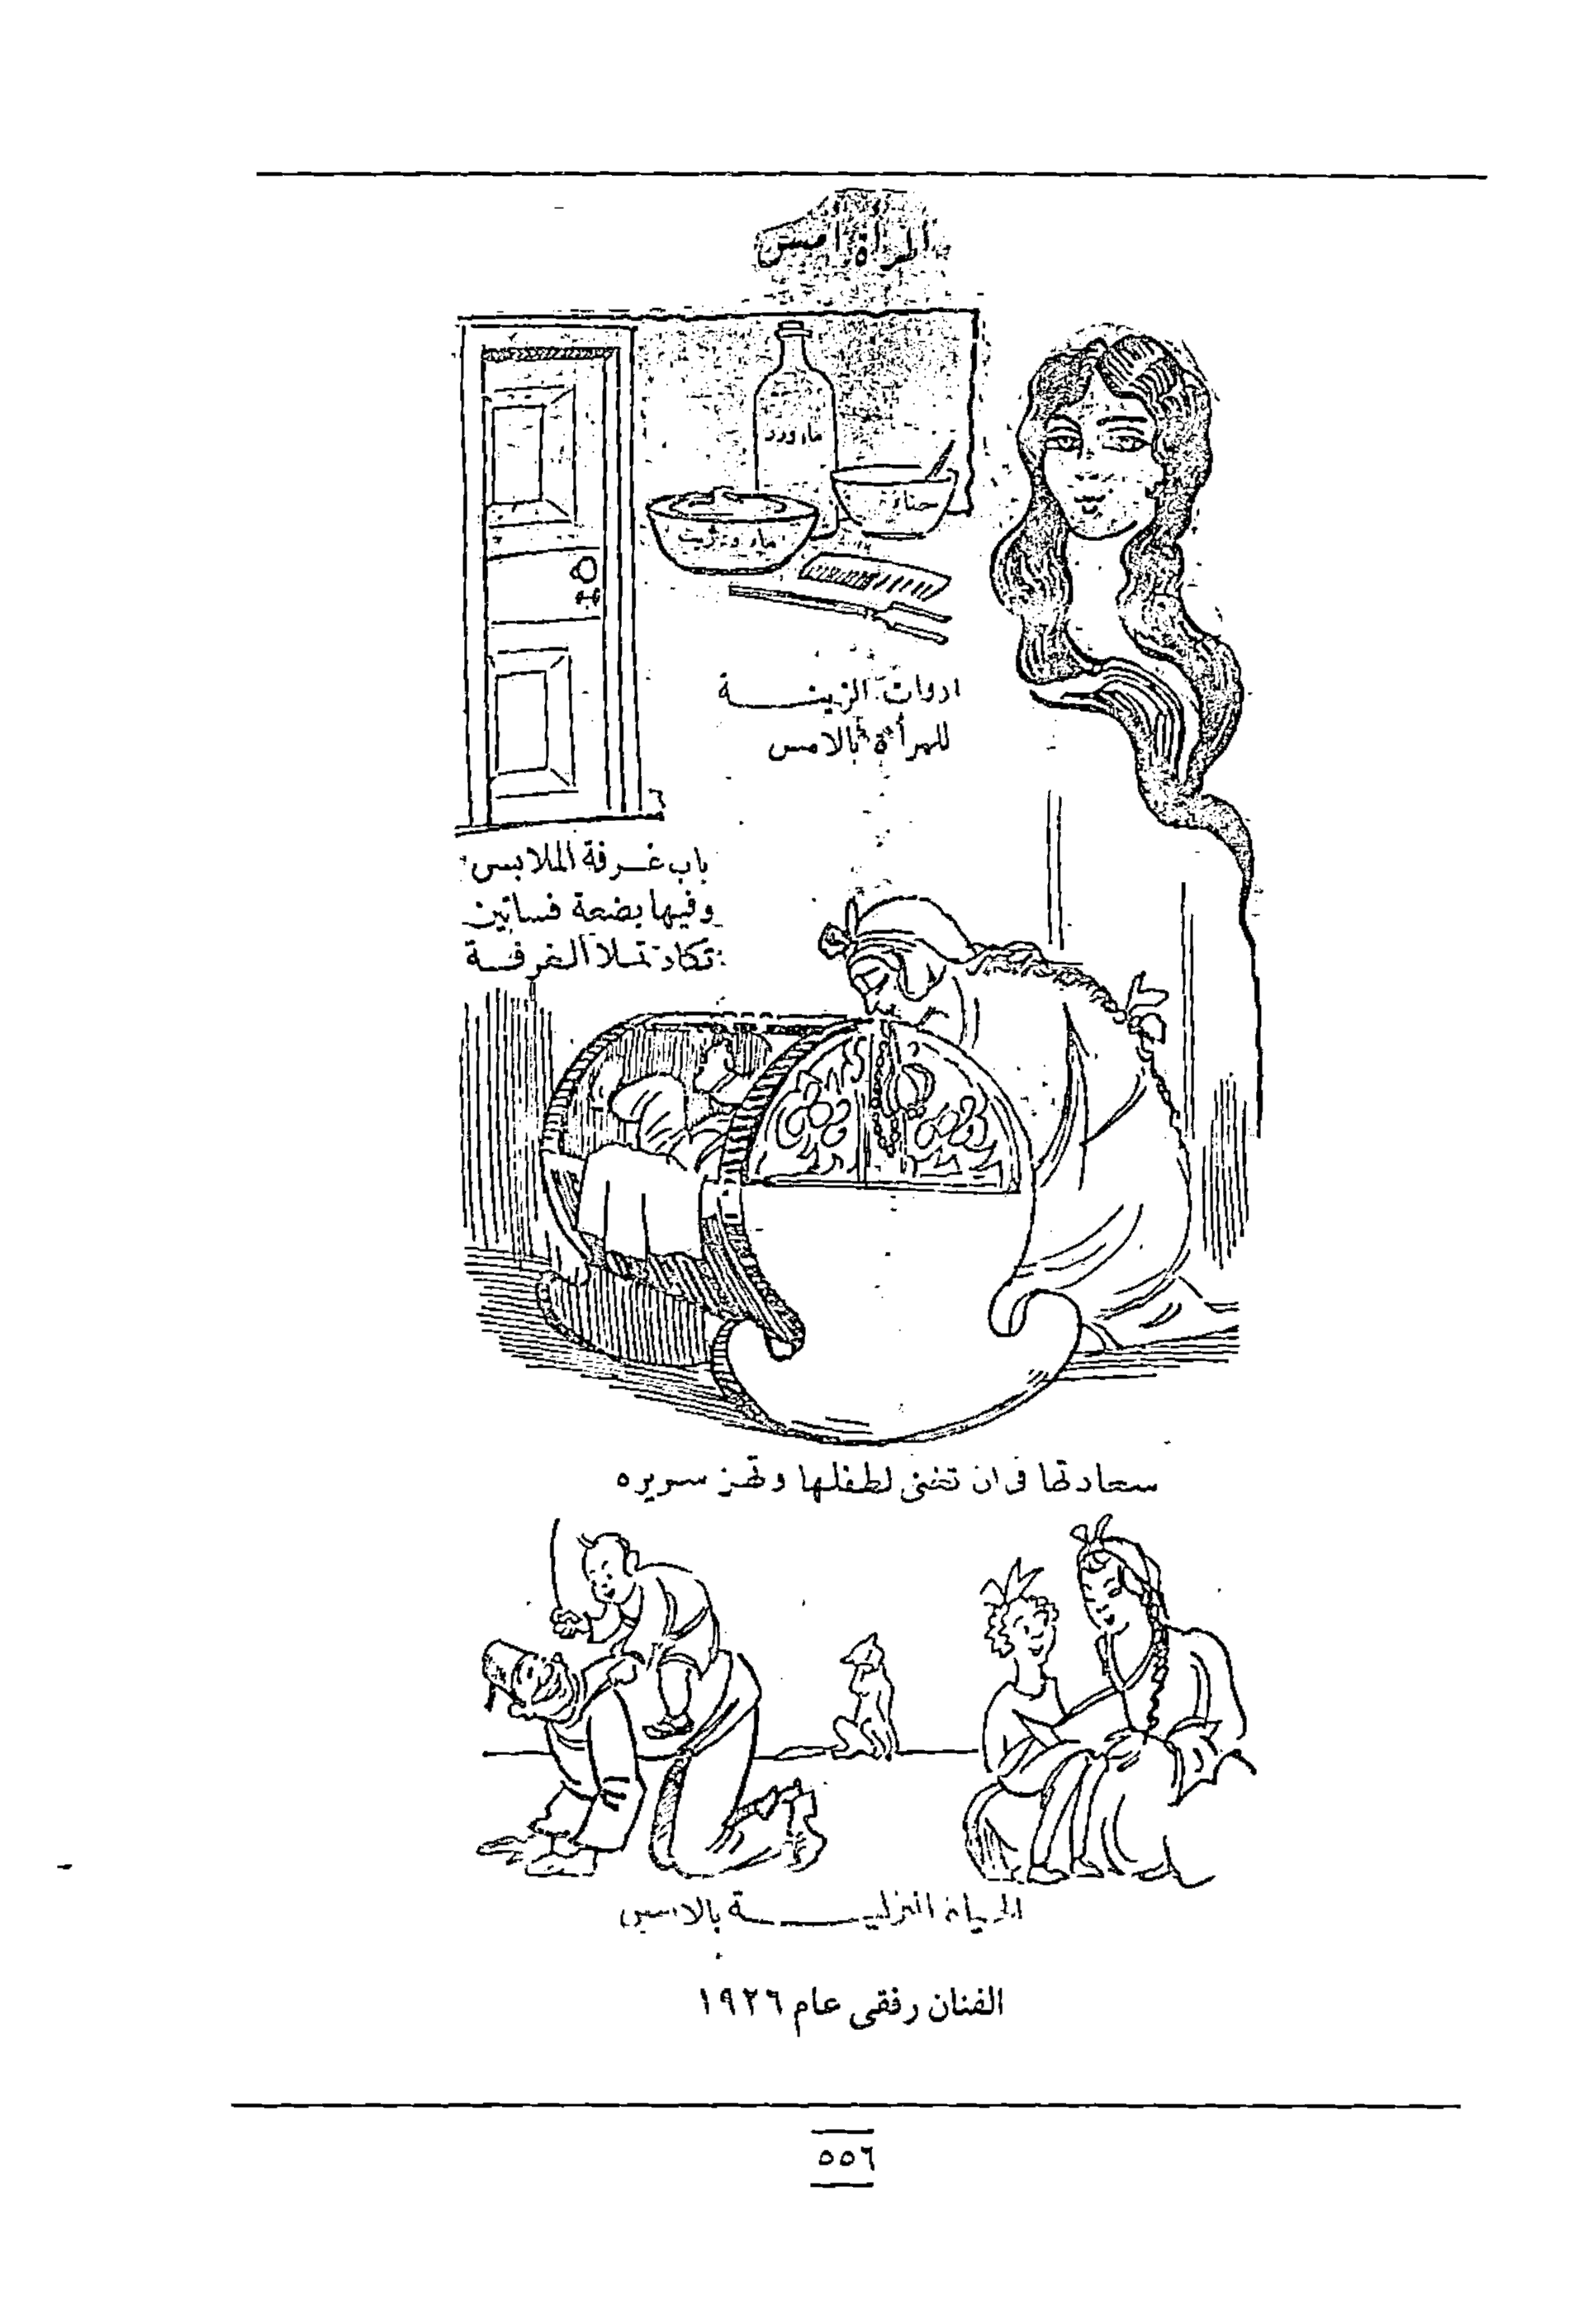 المرأة امس
ماء ورد
حناء
ماء وزيت
ادوات الزينـــة
للمرأة بالامس
باب غـرفة الملابس
وفيها بضعة فساتين
تكاد تملا الغرفـة
سعادتها فى ان تغنى لطفلها وتهـز سريره
الحياة المنزليـــــة بالامس
الفنان رفقى عام ١٩٢٦
٥٥٦